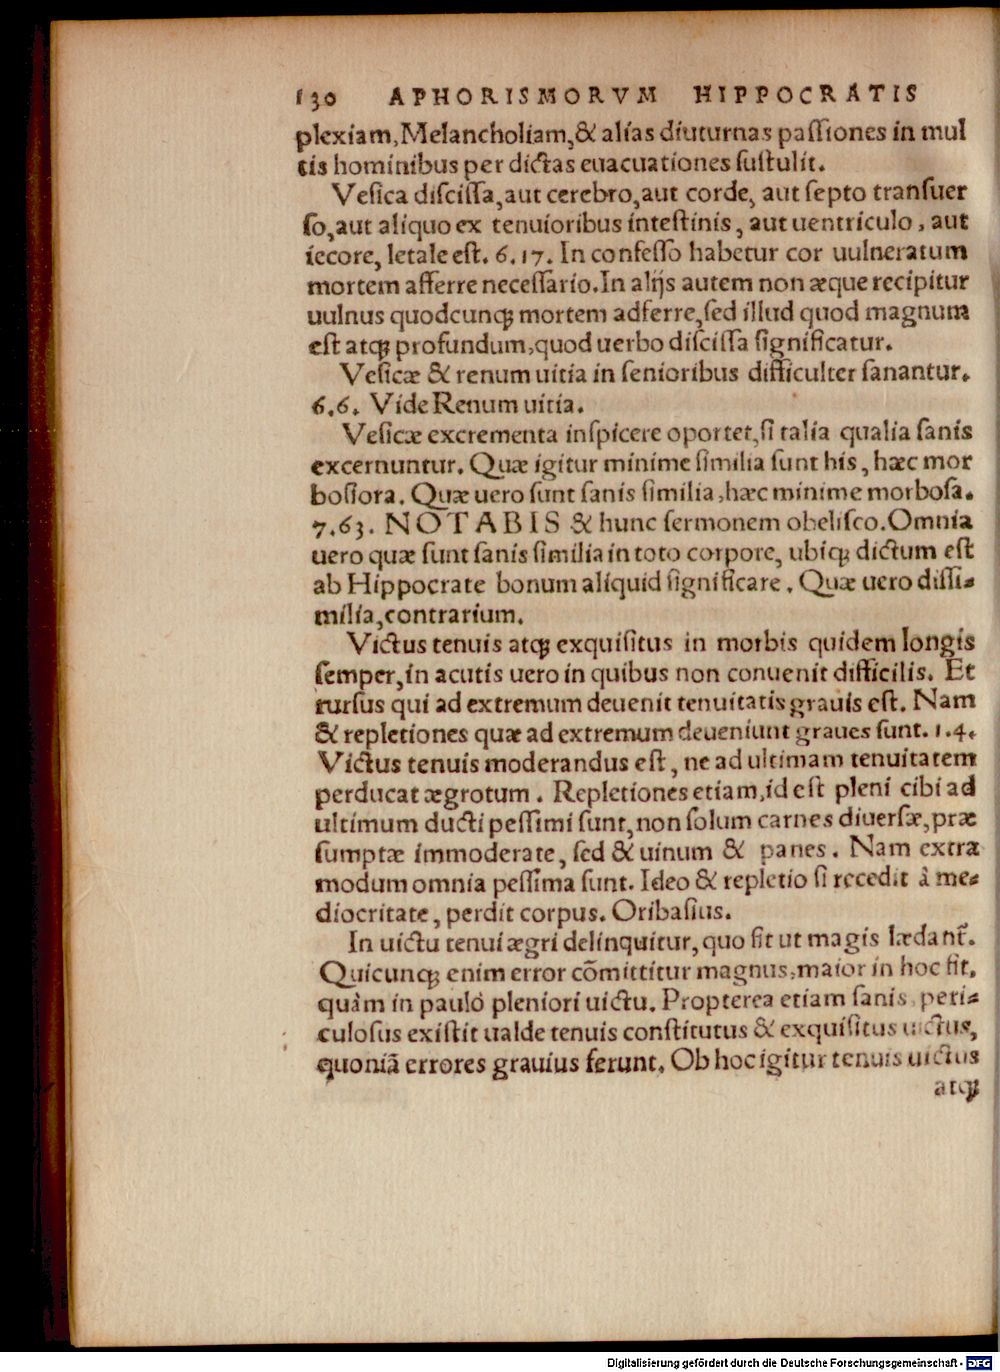 130 APHORISMORVM HIPPOCRATIS
plexiam, Melancholiam, & alias diuturnas paſſiones in mul
tis hominibus per dictas euacuationes ſuſtulit.
Veſica diſciſſa, aut cerebro, aut corde, aut ſepto tranſuer
ſo, aut aliquo ex tenuioribus inteſtinis, aut uentriculo, aut
iecore, letale eſt. 6.17. In confeſſo habetur cor uulneratum
mortem afferre neceſſario. In alijs autem non æque recipitur
uulnus quodcunq́; mortem adferre, ſed illud quod magnum
eſt atq́; profundum, quod uerbo diſciſſa ſignificatur.
Veſicæ & renum uitia in ſenioribus difficulter ſanantur.
6.6. Vide Renum uitia.
Veſicæ excrementa inſpicere oportet, ſi talia qualia ſanis
excernuntur. Quæ igitur minime ſimilia ſunt his, hæc mor
boſiora. Quæ uero ſunt ſanis ſimilia, hæc minime morboſa.
7.63. NOTABIS & hunc ſermonem obeliſco. Omnia
uero quæ ſunt ſanis ſimilia in toto corpore, ubiq́; dictum eſt
ab Hippocrate bonum aliquid ſignificare. Quæ uero diſſi-
milia, contrarium.
Victus tenuis atq́; exquiſitus in morbis quidem longis
ſemper, in acutis uero in quibus non conuenit difficilis. Et
rurſus qui ad extremum deuenit tenuitatis grauis eſt. Nam
& repletiones quæ ad extremum deueniunt graues ſunt. 1.4.
Victus tenuis moderandus eſt, ne ad ultimam tenuitatem
perducat ægrotum. Repletiones etiam, id eſt pleni cibi ad
ultimum ducti peſſimi ſunt, non ſolum carnes diuerſæ, præ
ſumptæ immoderate, ſed & uinum & panes. Nam extra
modum omnia peſſima ſunt. Ideo & repletio ſi recedit à me-
diocritate, perdit corpus. Oribaſius.
In uictu tenui ægri delinquitur, quo fit ut magis lædant̃.
Quicunq́; enim error cõmittitur magnus, maior in hoc fit,
quàm in paulò pleniori uictu. Propterea etiam ſanis peri-
culoſus exiſtit ualde tenuis conſtitutus & exquiſitus uictus,
quoniã errores grauius ferunt. Ob hoc igitur tenuis uictus
atq́;
Digitalisierung gefördert durch die Deutsche Forschungsgemeinschaft - DFG